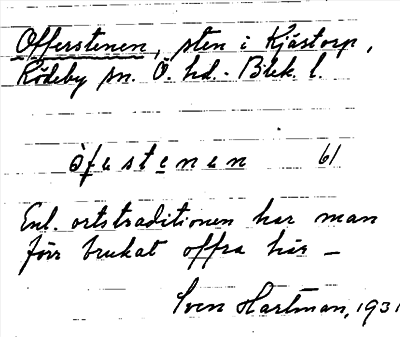 Offerstenen, sten i Kjästorp,
Rödeby sn. Ö. hd. - Blek. l.
òfestenen 61
Enl. ortstraditionen har man
förr brukat offra här —
Sven Hartman, 1931